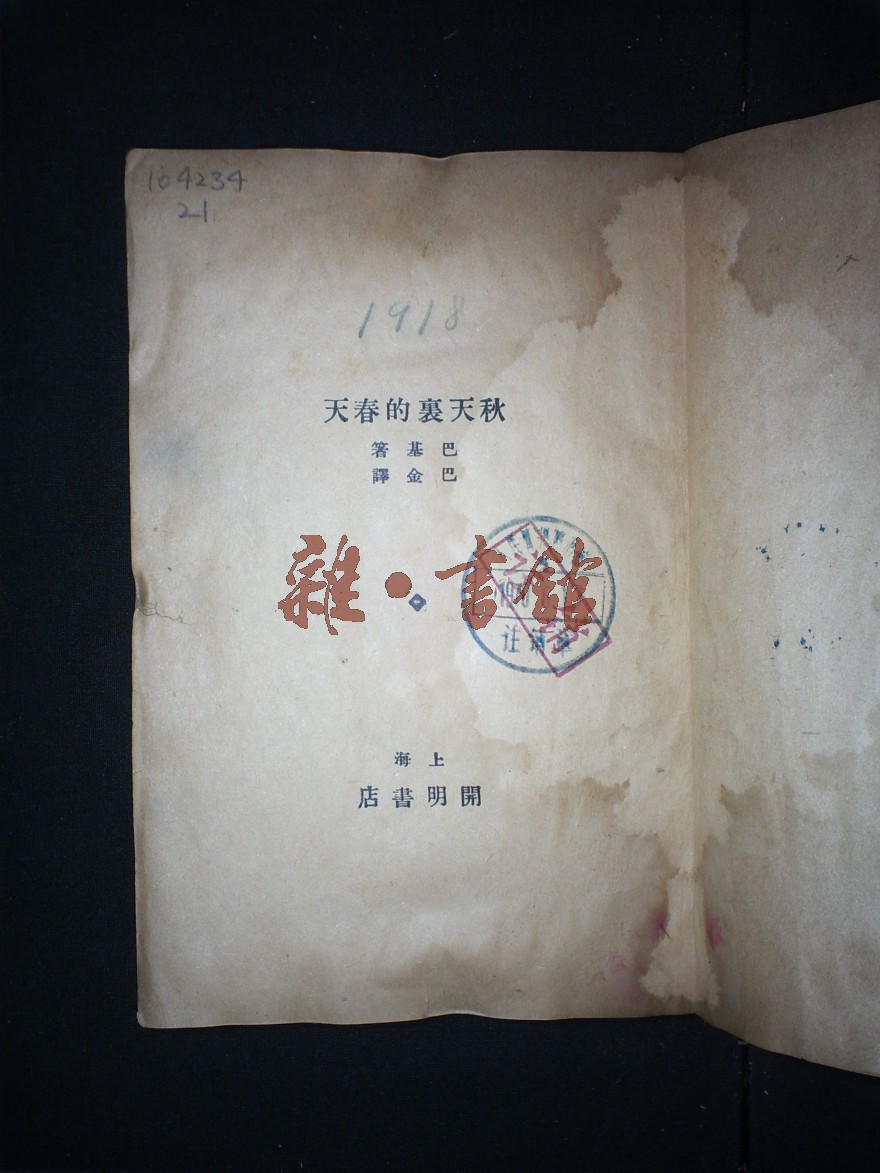 164234
21
1918
秋天裏的春天
巴基著
巴金譯
雜·書館
注銷章
上海
開明書店